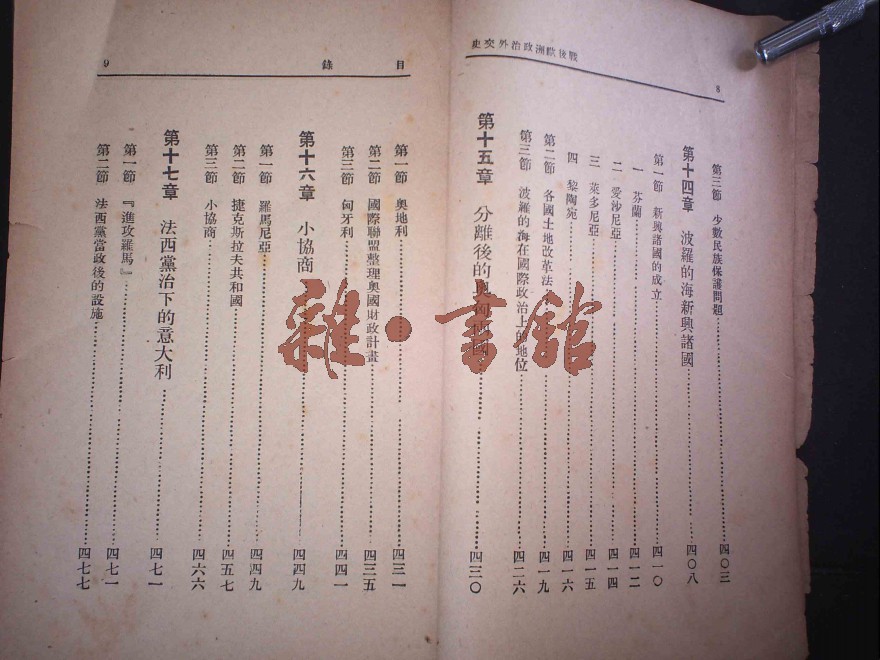 戰後歐洲政治外交史
8
第三節 少數民族保護問題 四〇三
第十四章 波羅的海新興諸國 四〇八
第一節 新興諸國的成立 四一〇
一 芬蘭 四一二
二 愛沙尼亞 四一四
三 萊多尼亞 四一五
四 黎陶宛 四一六
第二節 各國土地改革法 四一九
第三節 波羅的海在國際政治上的地位 四二六
第十五章 分離後的奧匈兩國 四三〇
目錄
9
第一節 奧地利 四三一
第二節 國際聯盟整理奧國財政計畫 四三五
第三節 匈牙利 四四一
第十六章 小協商 四四九
第一節 羅馬尼亞 四四九
第二節 捷克斯拉夫共和國 四五七
第三節 小協商 四六六
第十七章 法西黨治下的意大利 四七一
第一節 『進攻羅馬』 四七一
第二節 法西黨當政後的設施 四七七
雜·書館